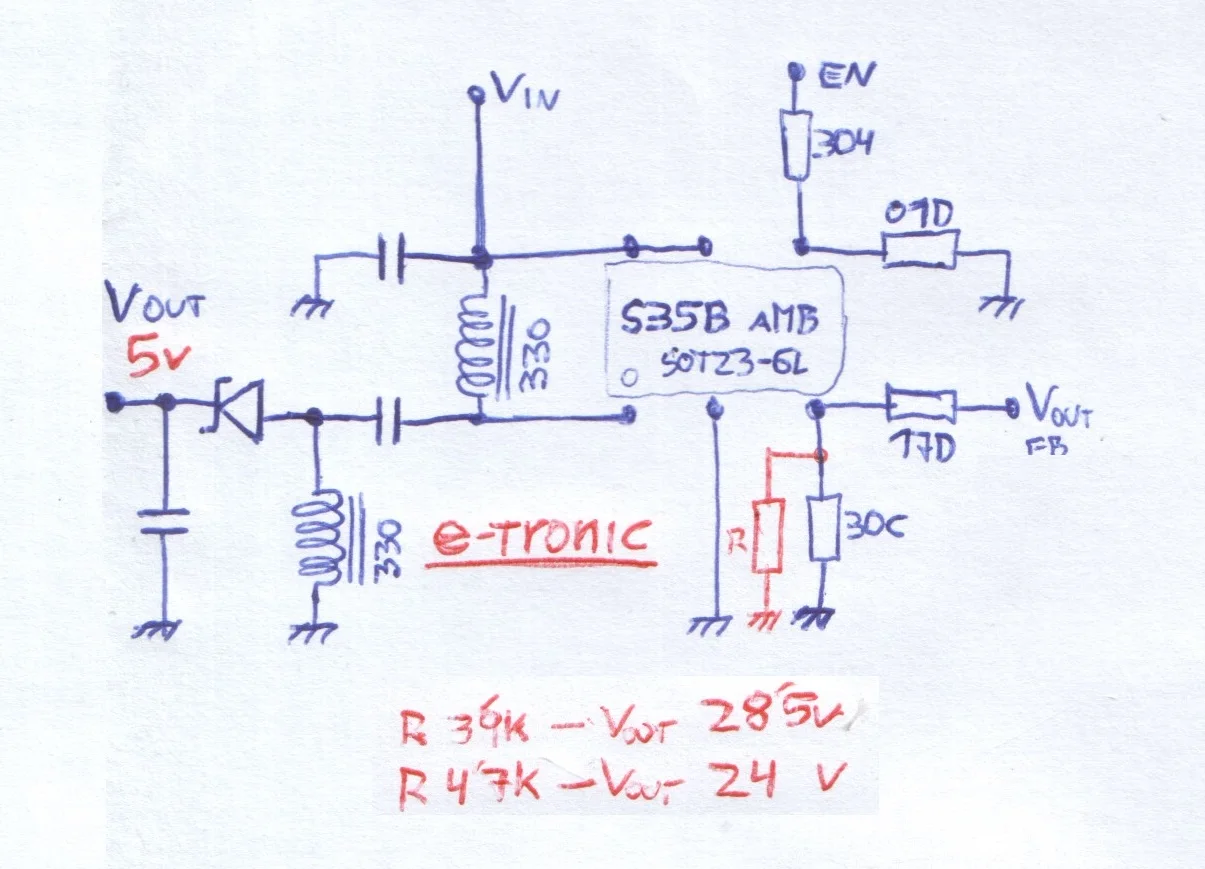 VIN
EN
304
01D
VOUT
5v
330
S35B AMB
SOT23-6L
VOUT
FB
17D
330
e-Tronic
R
30C
R 3'9K – VOUT 28'5V
R 4'7K – VOUT 24 V